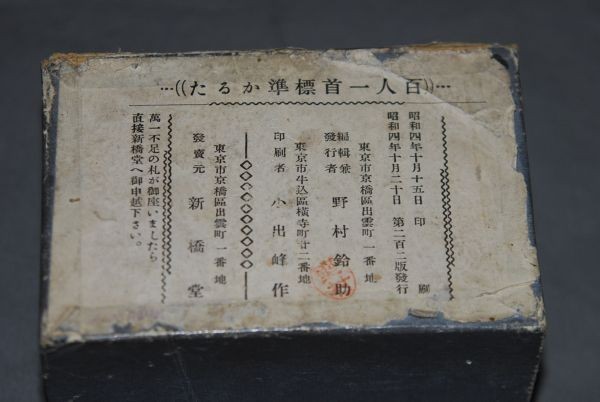 …((たるか準標首一人百))…
昭和四年十月十五日 印刷
昭和四年十月二十日 第二百二版發行
東京市京橋區出雲町一番地
編輯兼發行者 野村鈴助
東京市牛込區橫寺町廿二番地
印刷者 小出峰作
東京市京橋區出雲町一番地
發賣元 新橋堂
萬一不足の札が御座いましたら
直接新橋堂へ御申越下さい。